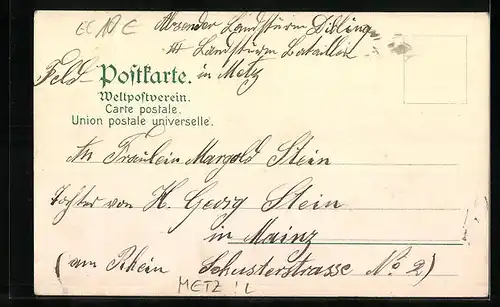 EC 10 E
Absender Landsturm Dibling
III Landsturm Bataillon
in Metz
Feld Postkarte.
Weltpostverein.
Carte postale.
Union postale universelle.
An Fräulein Margold Stein
Tochter von H. Georg Stein
in Mainz
(am Rhein Schusterstrasse No 2)
METZ